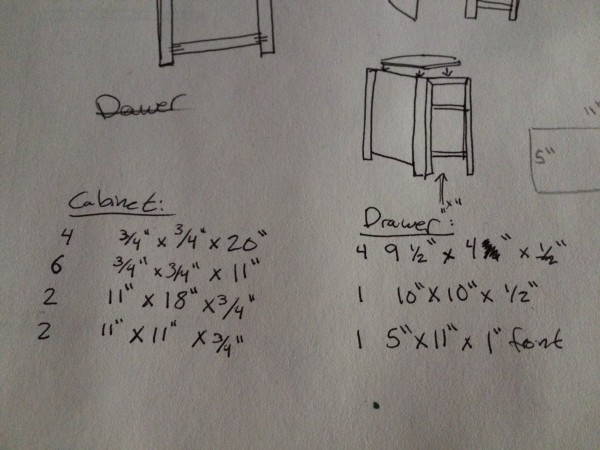 Dawer
11"
5"
Cabinet:
4 3/4" x 3/4" x 20"
6 3/4" x 3/4" x 11"
2 11" x 18" x 3/4"
2 11" x 11" x 3/4"
Drawer:
4 9 1/2" x 4 " x 1/2"
1 10" x 10" x 1/2"
1 5" x 11" x 1" font